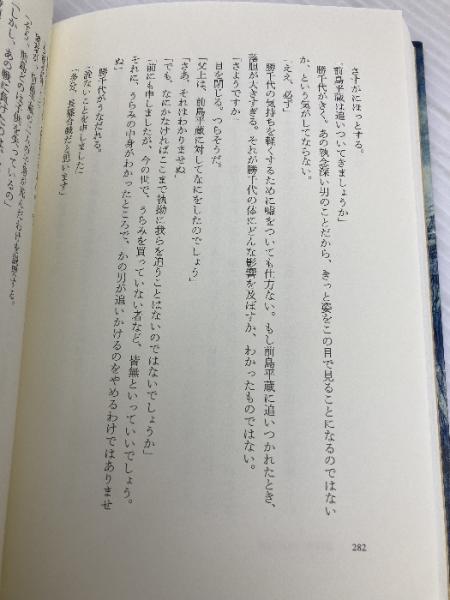 さすがにほっとする。
「前島平蔵は追いついてきましょうか」
勝千代がきく。あの執念深い男のことだから、きっと姿をこの目で見ることになるのではない
か、という気がしてならない。
「ええ、必ず」
勝千代の気持ちを軽くするために嘘をついても仕方ない。もし前島平蔵に追いつかれたとき、
落胆が大きすぎる。それが勝千代の体にどんな影響を及ぼすか、わかったものではない。
「さようですか」
目を閉じる。つらそうだ。
「父上は、前島平蔵に対してなにをしたのでしょう」
「さあ、それはわかりませぬ」
「でも、なにかなければここまで執拗に我らを追うことはないのではないでしょうか」
「前にも申しましたが、今の世で、うらみを買っていない者など、皆無といっていいでしょう。
それに、うらみの中身がわかったところで、かの男が追いかけるのをやめるわけではありませ
ぬ」
勝千代がうなだれる。
「詮ないことを申しました」
「多分、長篠合戦だと思います」
「しかし、あの戦に負けたのは
282